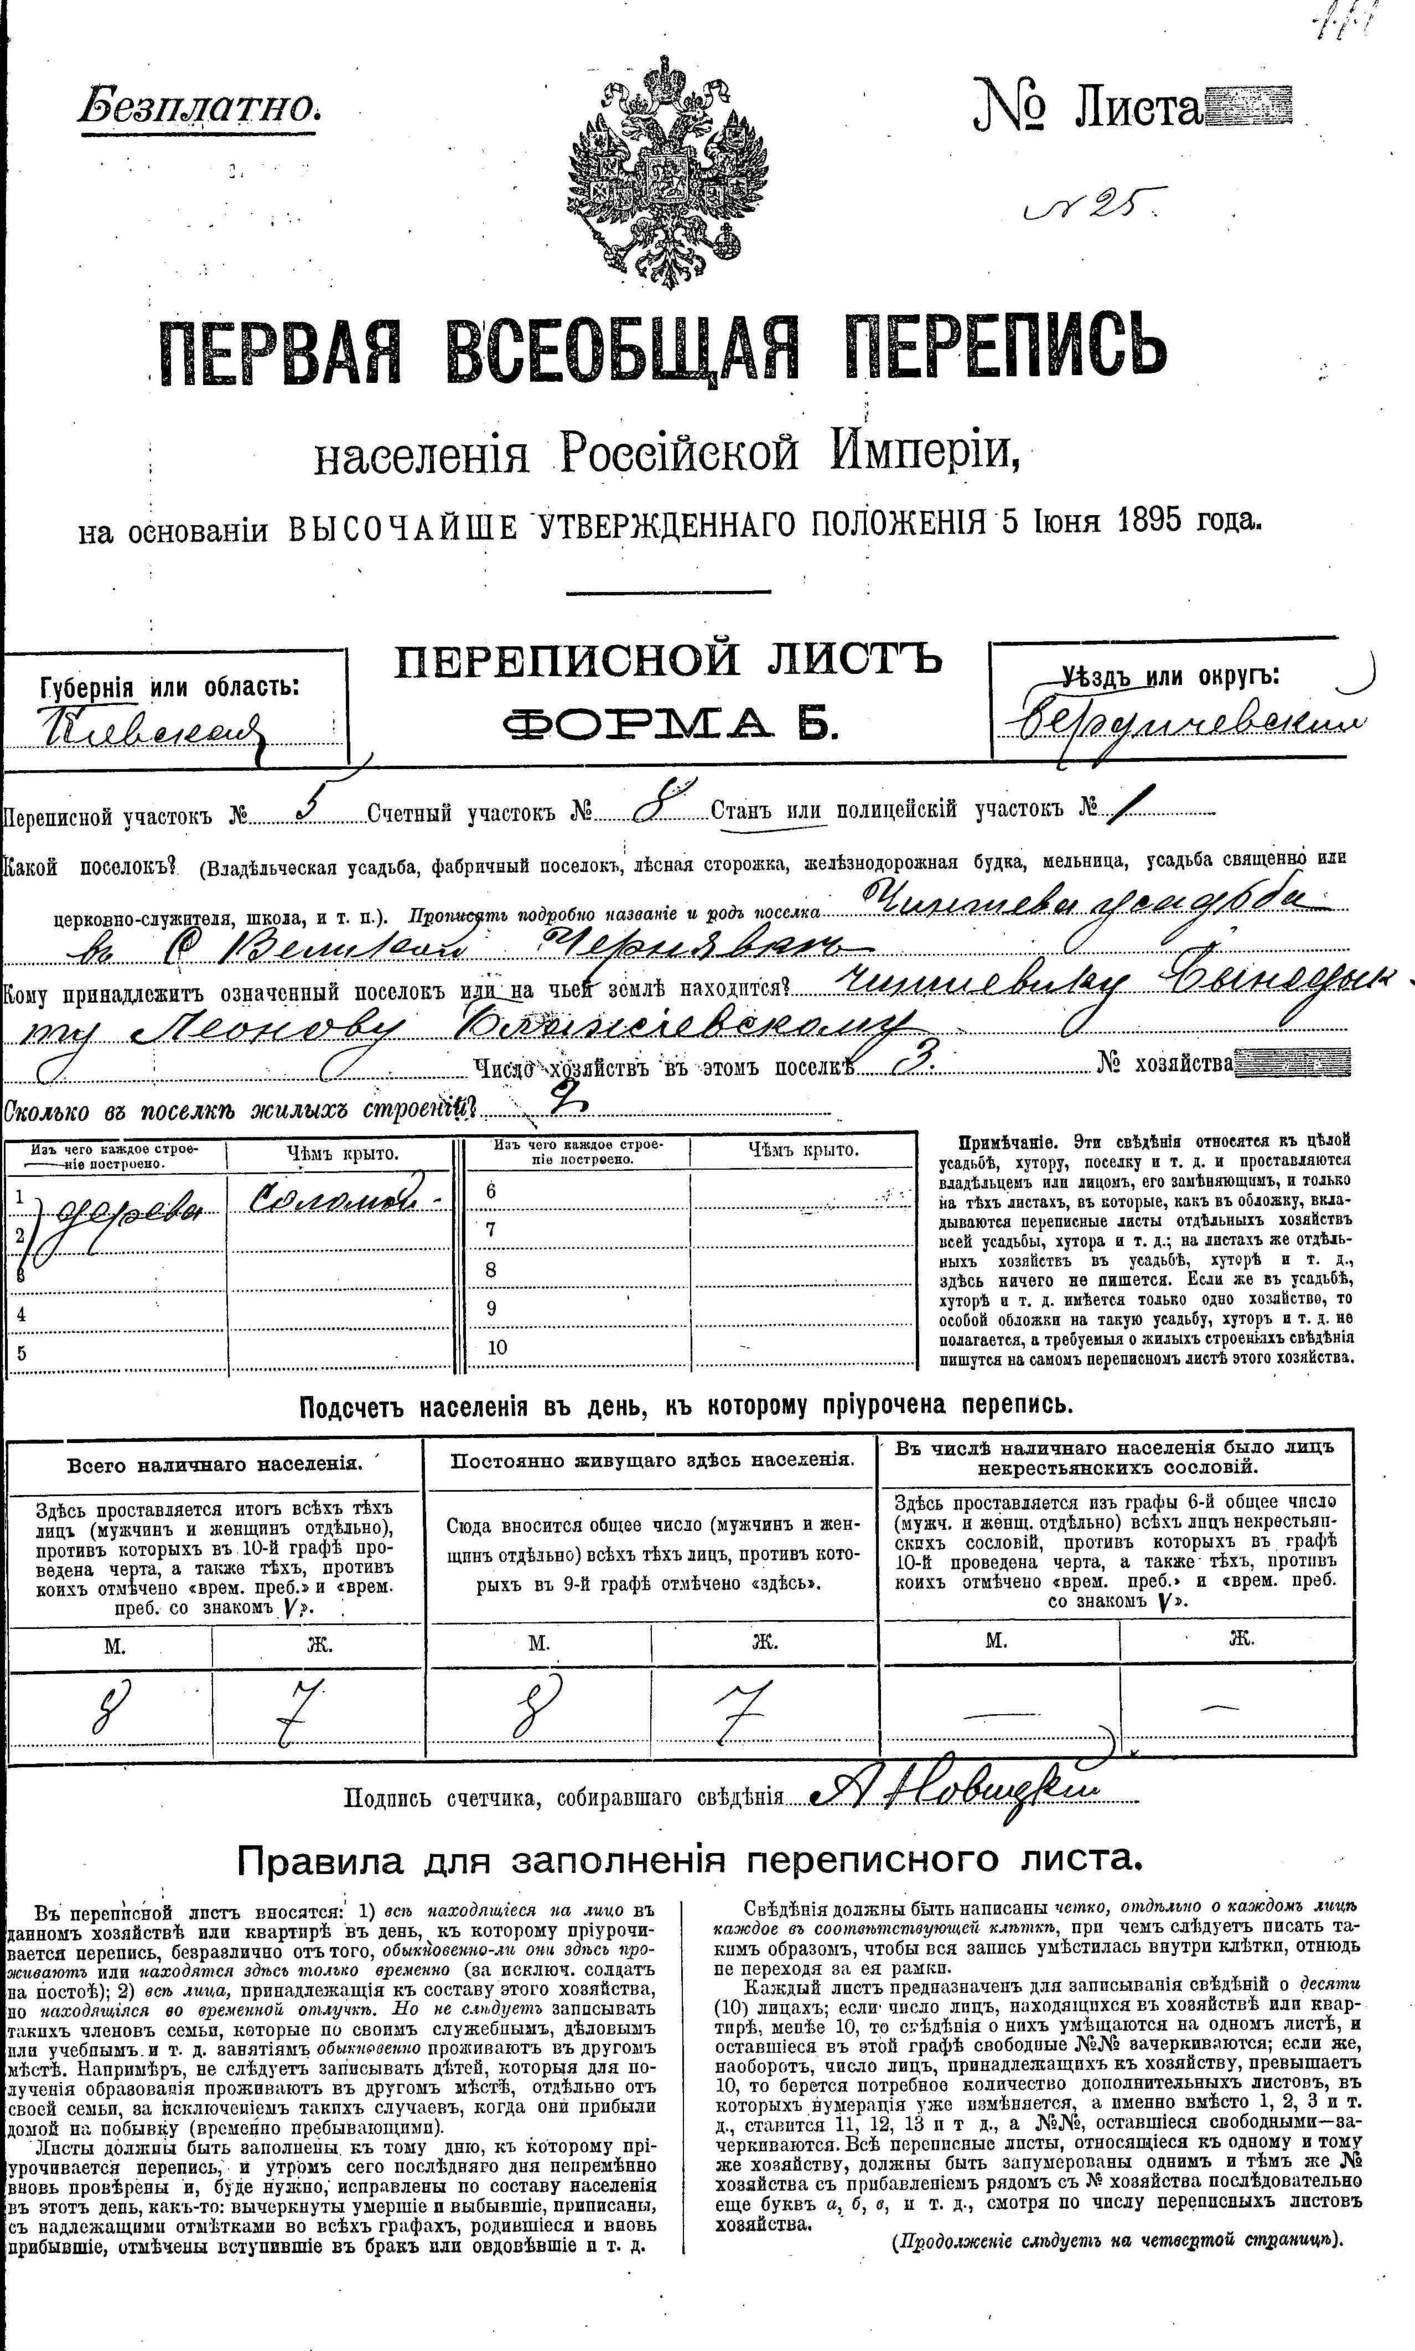 Безплатно.
№ Листа
№ 25.
ПЕРВАЯ ВСЕОБЩАЯ ПЕРЕПИСЬ
населенія Россійской Имперіи,
на основаніи ВЫСОЧАЙШЕ УТВЕРЖДЕННАГО ПОЛОЖЕНІЯ 5 Іюня 1895 года.
ПЕРЕПИСНОЙ ЛИСТЪ
ФОРМА Б.
Губернія или область:
Кіевская
Уѣздъ или округъ:
Бердичевскій
Переписной участокъ № 5 Счетный участокъ № 8 Станъ или полицейскій участокъ № 1
Какой поселокъ? (Владѣльческая усадьба, фабричный поселокъ, лѣсная сторожка, желѣзнодорожная будка, мельница, усадьба священно или
церковно-служителя, школа, и т. п.). Прописать подробно названіе и родъ поселка Чиншева усадьба
въ С Великой Чернявкѣ
Кому принадлежитъ означенный поселокъ или на чьей землѣ находится? чиншевику
ту Леонову
Число хозяйствъ въ этомъ поселкѣ 3. № хозяйства
Сколько въ поселкѣ жилыхъ строеній? 2
Изъ чего каждое строеніе построено. Чѣмъ крыто. Изъ чего каждое строеніе построено. Чѣмъ крыто.
1 дерева Соломой 6
2 7
3 8
4 9
5 10
Примѣчаніе. Эти свѣдѣнія относятся къ цѣлой
усадьбѣ, хутору, поселку и т. д. и проставляются
владѣльцемъ или лицомъ, его замѣняющимъ, и только
на тѣхъ листахъ, въ которые, какъ въ обложку, вкла-
дываются переписные листы отдѣльныхъ хозяйствъ
всей усадьбы, хутора и т. д.; на листахъ же отдѣль-
ныхъ хозяйствъ въ усадьбѣ, хуторѣ и т. д.,
здѣсь ничего не пишется. Если же въ усадьбѣ,
хуторѣ и т. д. имѣется только одно хозяйство, то
особой обложки на такую усадьбу, хуторъ и т. д. не
полагается, а требуемыя о жилыхъ строеніяхъ свѣдѣнія
пишутся на самомъ переписномъ листѣ этого хозяйства.
Подсчетъ населенія въ день, къ которому пріурочена перепись.
Всего наличнаго населенія.
Здѣсь проставляется итогъ всѣхъ тѣхъ
лицъ (мужчинъ и женщинъ отдѣльно),
противъ которыхъ въ 10-й графѣ про-
ведена черта, а также тѣхъ, противъ
коихъ отмѣчено «врем. преб.» и «врем.
преб. со знакомъ V».
М. Ж.
8 7
Постоянно живущаго здѣсь населенія.
Сюда вносится общее число (мужчинъ и жен-
щинъ отдѣльно) всѣхъ тѣхъ лицъ, противъ кото-
рыхъ въ 9-й графѣ отмѣчено «здѣсь».
М. Ж.
8 7
Въ числѣ наличнаго населенія было лицъ
некрестьянскихъ сословій.
Здѣсь проставляется изъ графы 6-й общее число
(мужч. и женщ. отдѣльно) всѣхъ лицъ некрестьян-
скихъ сословій, противъ которыхъ въ графѣ
10-й проведена черта, а также тѣхъ, противъ
коихъ отмѣчено «врем. преб.» и «врем. преб.
со знакомъ V».
М. Ж.
— —
Подпись счетчика, собиравшаго свѣдѣнія А Новицкій
Правила для заполненія переписного листа.
Въ переписной листъ вносятся: 1) всѣ находящіеся на лицо въ
данномъ хозяйствѣ или квартирѣ въ день, къ которому пріурочи-
вается перепись, безразлично отъ того, обыкновенно-ли они здѣсь про-
живаютъ или находятся здѣсь только временно (за исключ. солдатъ
на постоѣ); 2) всѣ лица, принадлежащія къ составу этого хозяйства,
но находящіяся во временной отлучкѣ. Но не слѣдуетъ записывать
такихъ членовъ семьи, которые по своимъ служебнымъ, дѣловымъ
или учебнымъ и т. д. занятіямъ обыкновенно проживаютъ въ другомъ
мѣстѣ. Напримѣръ, не слѣдуетъ записывать дѣтей, которыя для по-
лученія образованія проживаютъ въ другомъ мѣстѣ, отдѣльно отъ
своей семьи, за исключеніемъ такихъ случаевъ, когда они прибыли
домой на побывку (временно пребывающими).
Листы должны быть заполнены къ тому дню, къ которому прі-
урочивается перепись, и утромъ сего послѣдняго дня непремѣнно
вновь провѣрены и, буде нужно, исправлены по составу населенія
въ этотъ день, какъ-то: вычеркнуты умершіе и выбывшіе, приписаны,
съ надлежащими отмѣтками во всѣхъ графахъ, родившіеся и вновь
прибывшіе, отмѣчены вступившіе въ бракъ или овдовѣвшіе и т. д.
Свѣдѣнія должны быть написаны четко, отдѣльно о каждомъ лицѣ
каждое въ соотвѣтствующей клѣткѣ, при чемъ слѣдуетъ писать та-
кимъ образомъ, чтобы вся запись умѣстилась внутри клѣтки, отнюдь
не переходя за ея рамки.
Каждый листъ предназначенъ для записыванія свѣдѣній о десяти
(10) лицахъ; если число лицъ, находящихся въ хозяйствѣ или квар-
тирѣ, менѣе 10, то свѣдѣнія о нихъ умѣщаются на одномъ листѣ, и
оставшіеся въ этой графѣ свободные №№ зачеркиваются; если же,
наоборотъ, число лицъ, принадлежащихъ къ хозяйству, превышаетъ
10, то берется потребное количество дополнительныхъ листовъ, въ
которыхъ нумерація уже измѣняется, а именно вмѣсто 1, 2, 3 и т.
д., ставится 11, 12, 13 и т д., а №№, оставшіеся свободными—за-
черкиваются. Всѣ переписные листы, относящіеся къ одному и тому
же хозяйству, должны быть занумерованы однимъ и тѣмъ же №
хозяйства съ прибавленіемъ рядомъ съ № хозяйства послѣдовательно
еще буквъ а, б, в, и т. д., смотря по числу переписныхъ листовъ
хозяйства.
(Продолженіе слѣдуетъ на четвертой страницѣ).